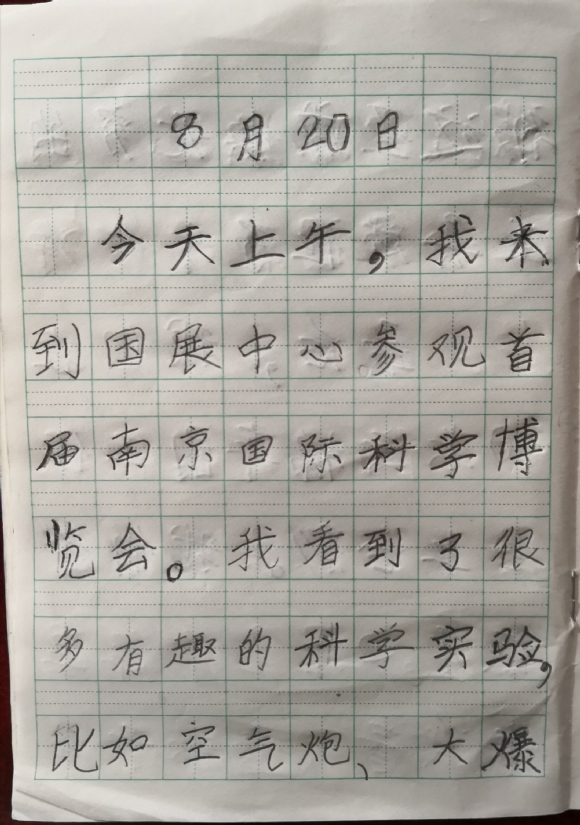 8月20日
今天上午，我来
到国展中心参观首
届南京国际科学博
览会。我看到了很
多有趣的科学实验，
比如空气炮、大爆